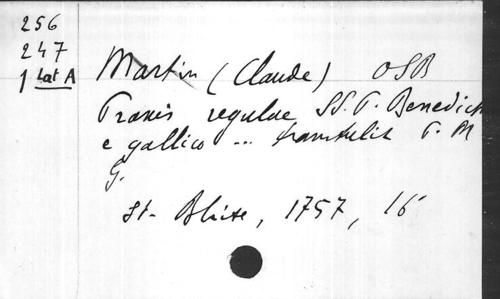 256
247
1 Lat A
Martin (Claude) OSB
Praxis regulae SS. P. Benedicti
e gallico ... transtulit P. M
G.
St. Blaise, 1757, 16